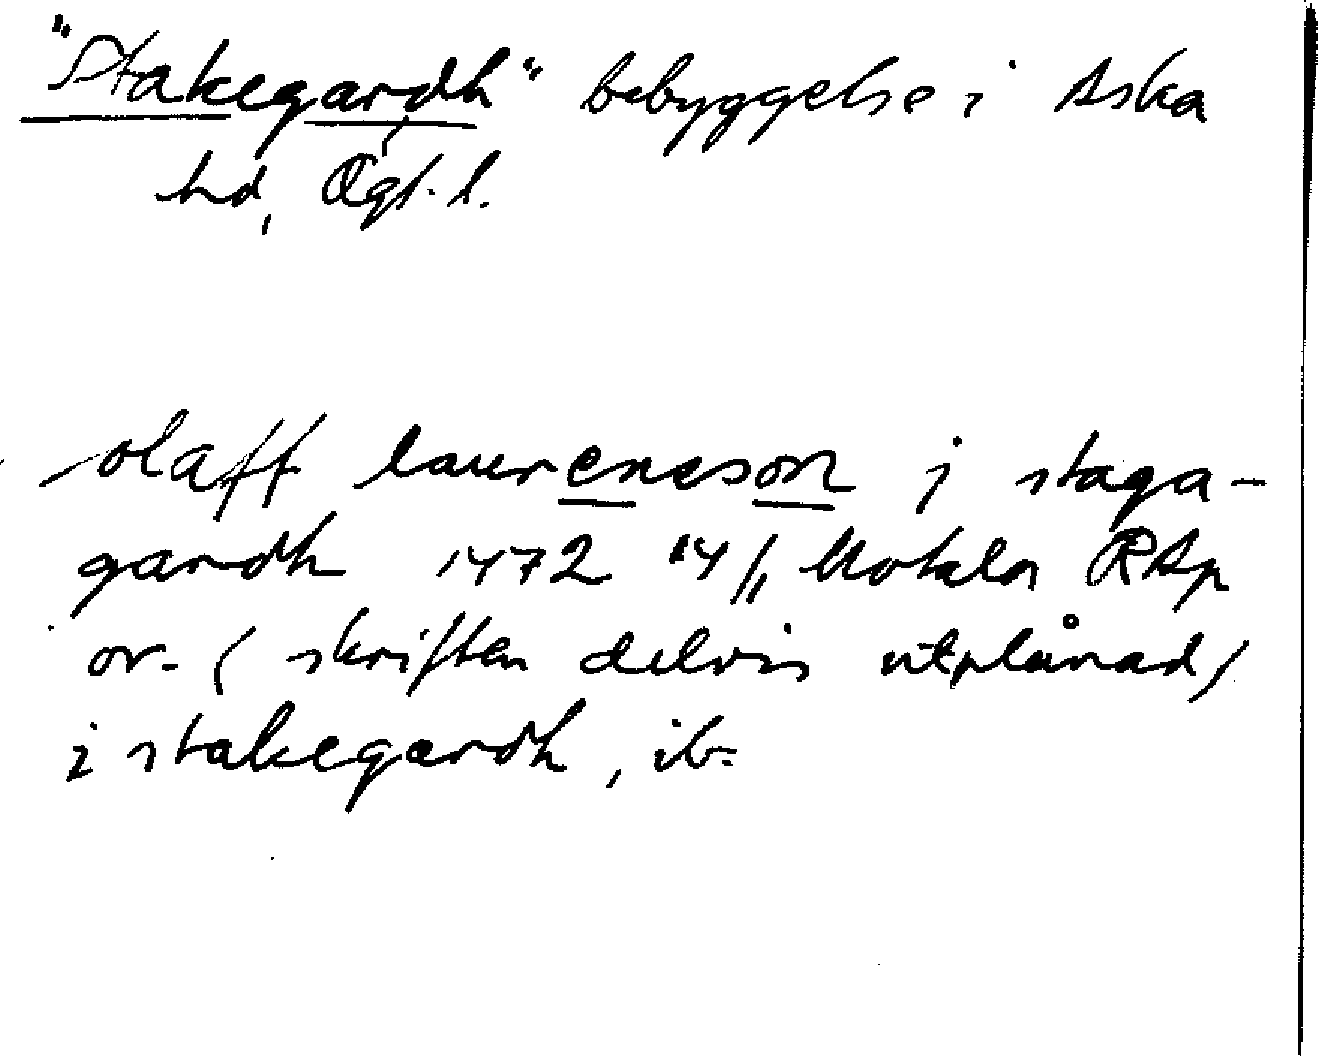 "Stakegardh" bebyggelse i Aska
hd, Ögl. l.
olaff laurensson j staga-
gardh 1472 14/11 Motala RAp
or. (skriften delvis utplånad)
i stakegardh, ib.